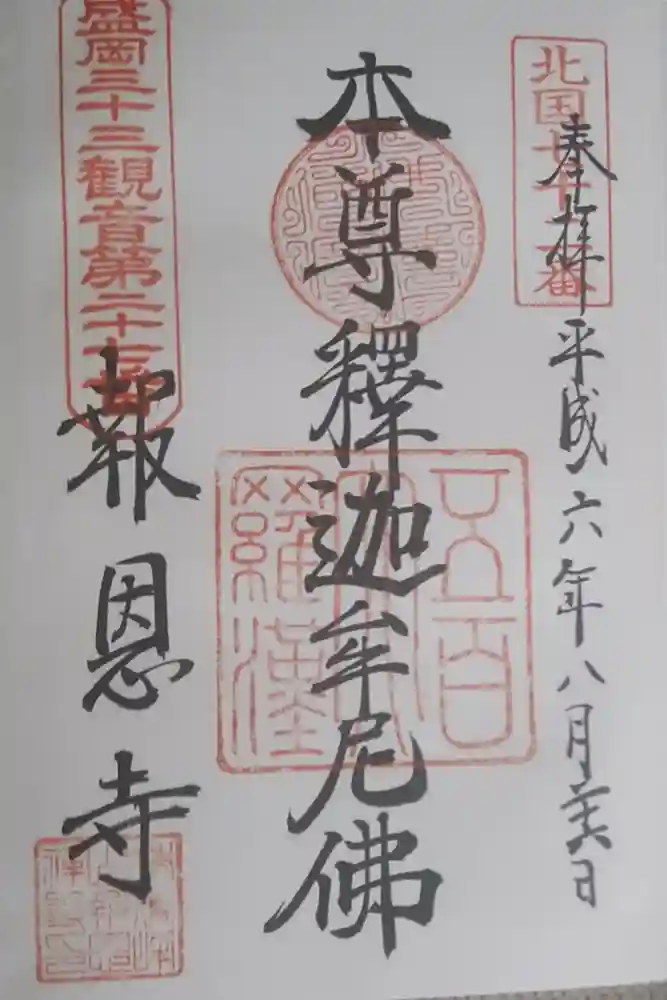 奉拝 平成六年八月廿六日
本尊釋迦牟尼佛
五百
羅漢
盛岡三十三観音第二十七番
報恩寺